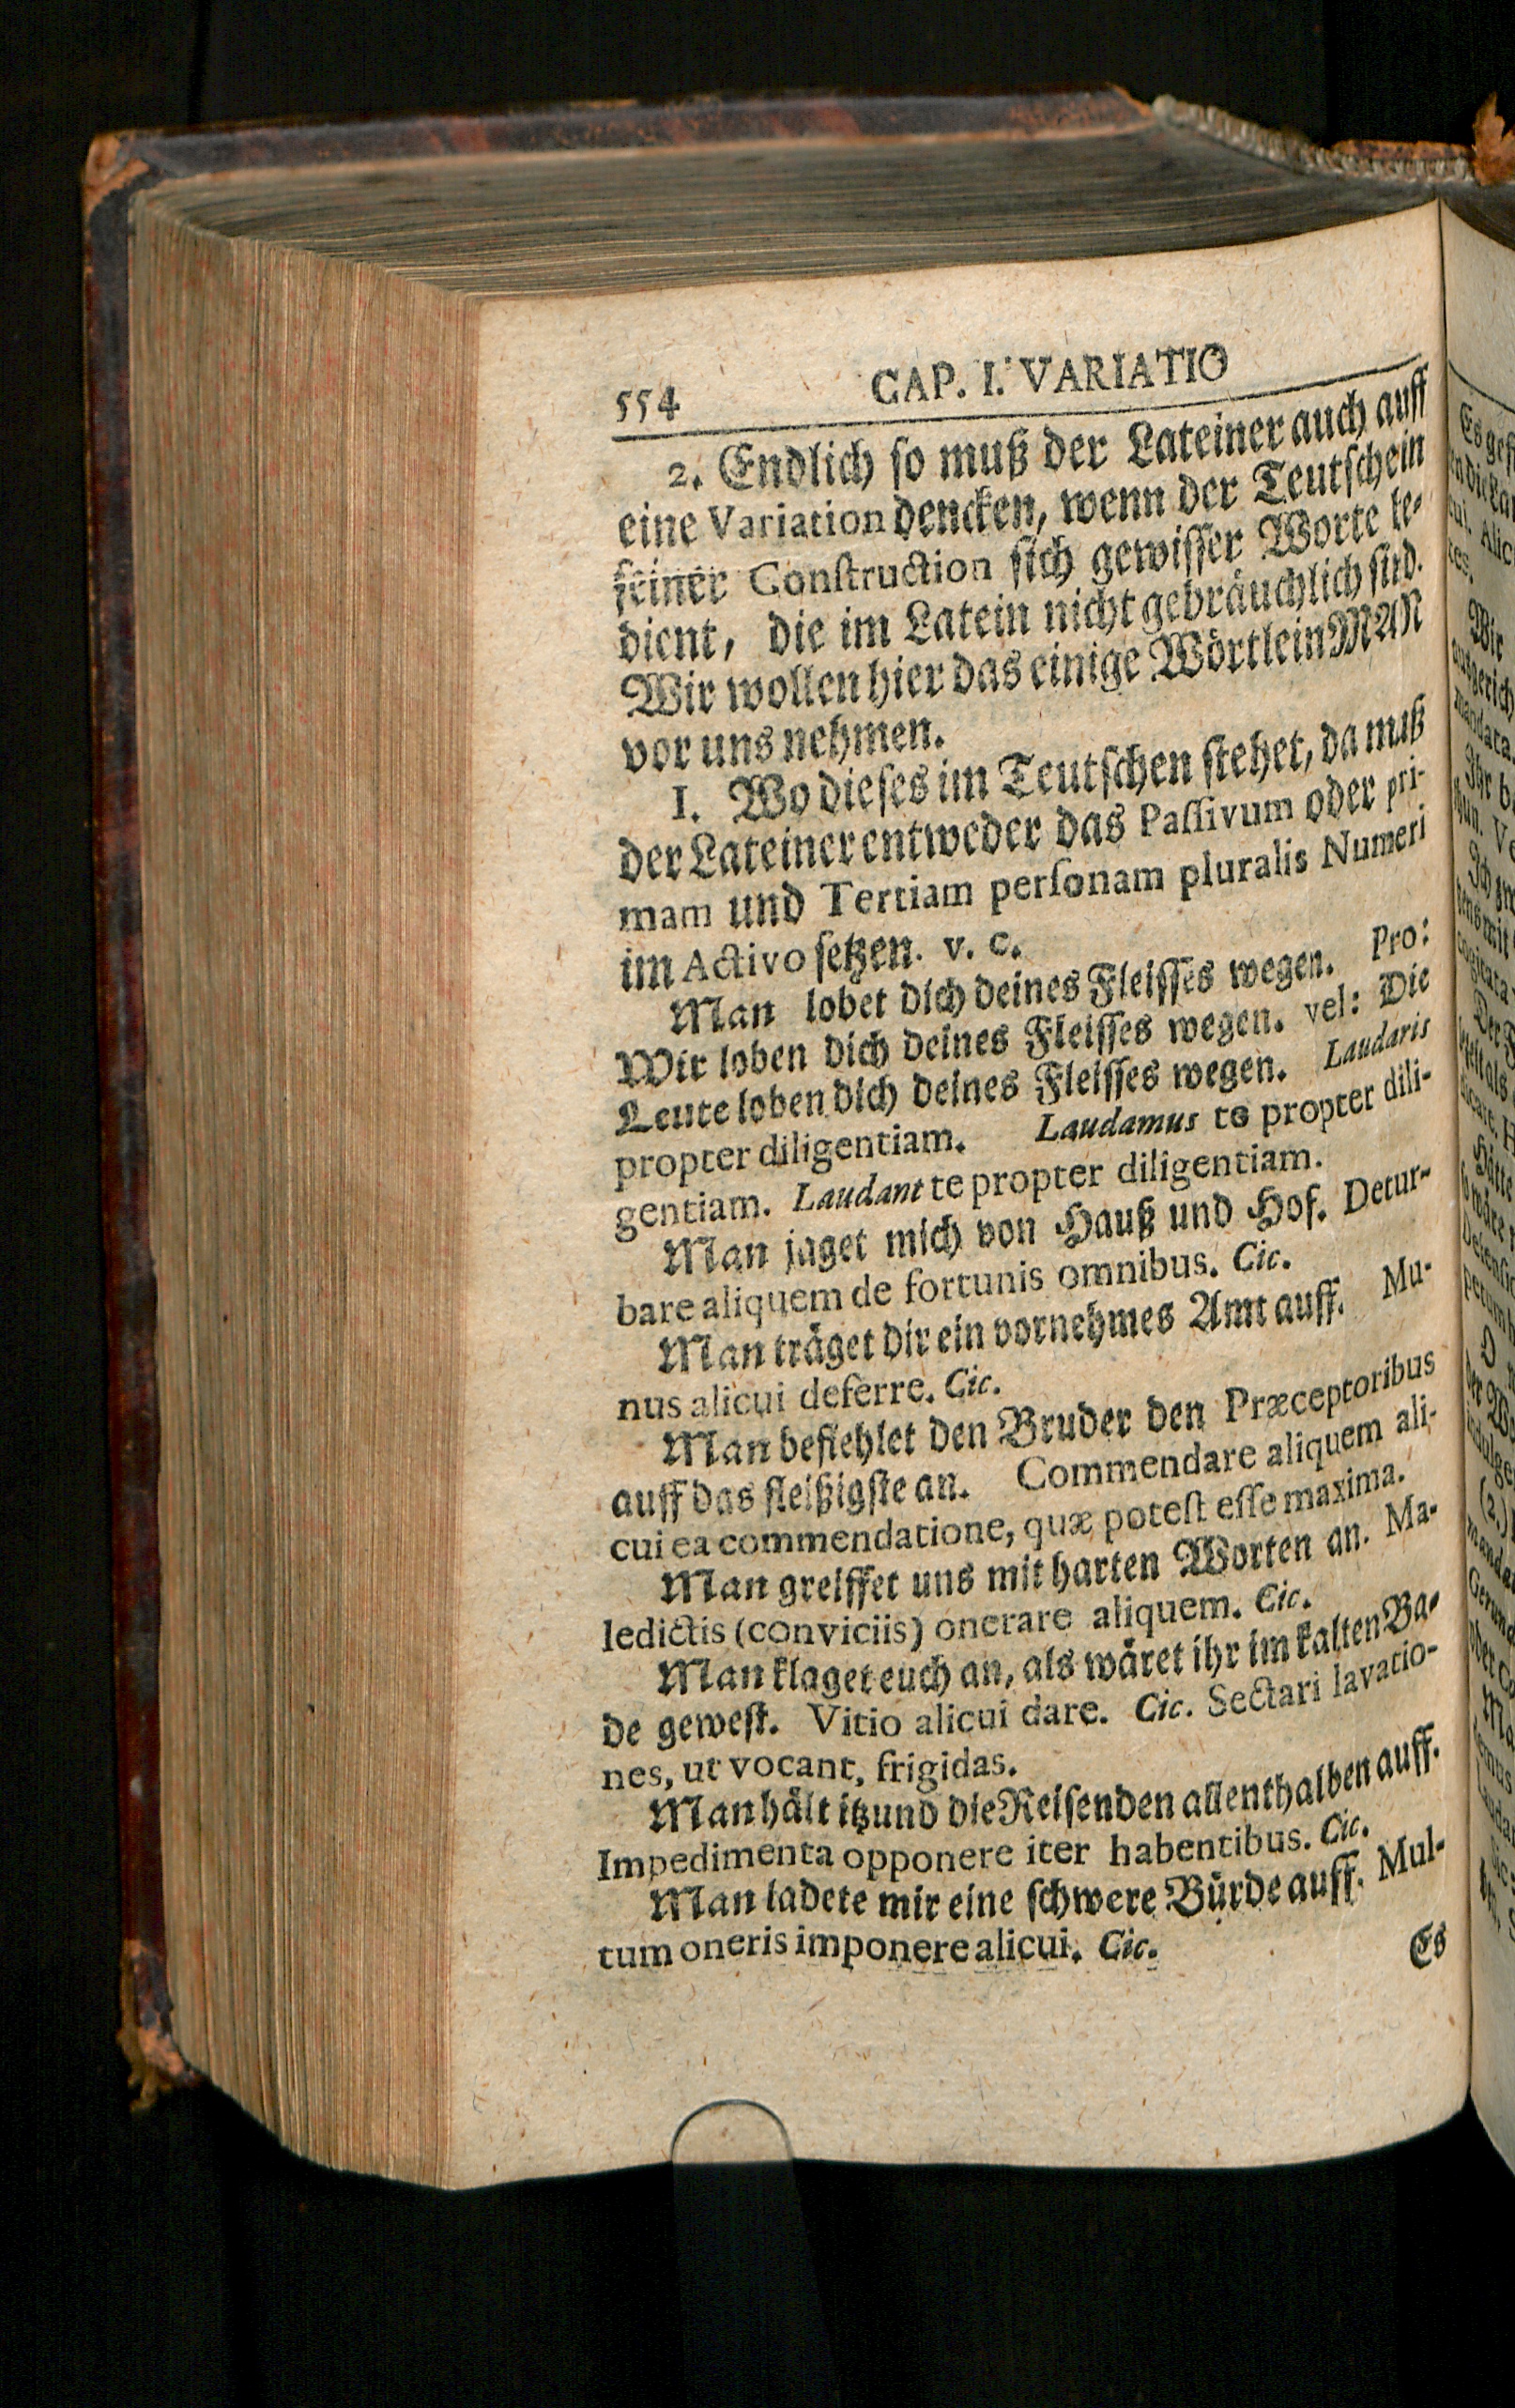 554 CAP. I. VARIATIO
2. Endlich so muß der Lateiner auch auff
eine Variation dencken, wenn der Teutsche in
seiner Construction sich gewisser Worte be-
dient, die im Latein nicht gebräuchlich sind.
Wir wollen hier das einige Wörtlein MAN
vor uns nehmen.
1. Wo dieses im Teutschen stehet, da muß
der Lateiner entweder das Passivum oder pri-
mam und Tertiam personam pluralis Numeri
im Activo setzen. v. c.
Man lobet dich deines Fleisses wegen. Pro:
Wir loben dich deines Fleisses wegen. vel: Die
Leute loben dich deines Fleisses wegen. Laudaris
propter diligentiam. Laudamus te propter dili-
gentiam. Laudant te propter diligentiam.
Man jaget mich von Hauß und Hof. Detur-
bare aliquem de fortunis omnibus. Cic.
Man träget dir ein vornehmes Amt auff. Mu-
nus alicui deferre. Cic.
Man befiehlet den Bruder den Præceptoribus
auff das fleißigste an. Commendare aliquem ali-
cui ea commendatione, quæ potest esse maxima.
Man greiffet uns mit harten Worten an. Ma-
ledictis (conviciis) onerare aliquem. Cic.
Man klaget euch an, als wäret ihr im kalten Ba-
de gewest. Vitio alicui dare. Cic. Sectari lavatio-
nes, ut vocant, frigidas.
Man hält itzund die Reisenden allenthalben auff.
Impedimenta opponere iter habentibus. Cic.
Man ladete mir eine schwere Bürde auff. Mul-
tum oneris imponere alicui. Cic.
Es